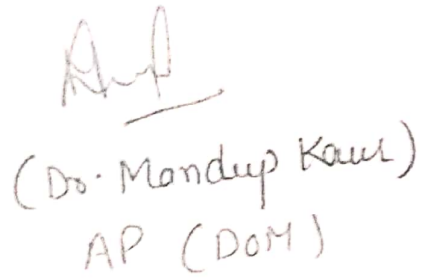 (Dr. Mandeep Kaur)
AP (DOM)